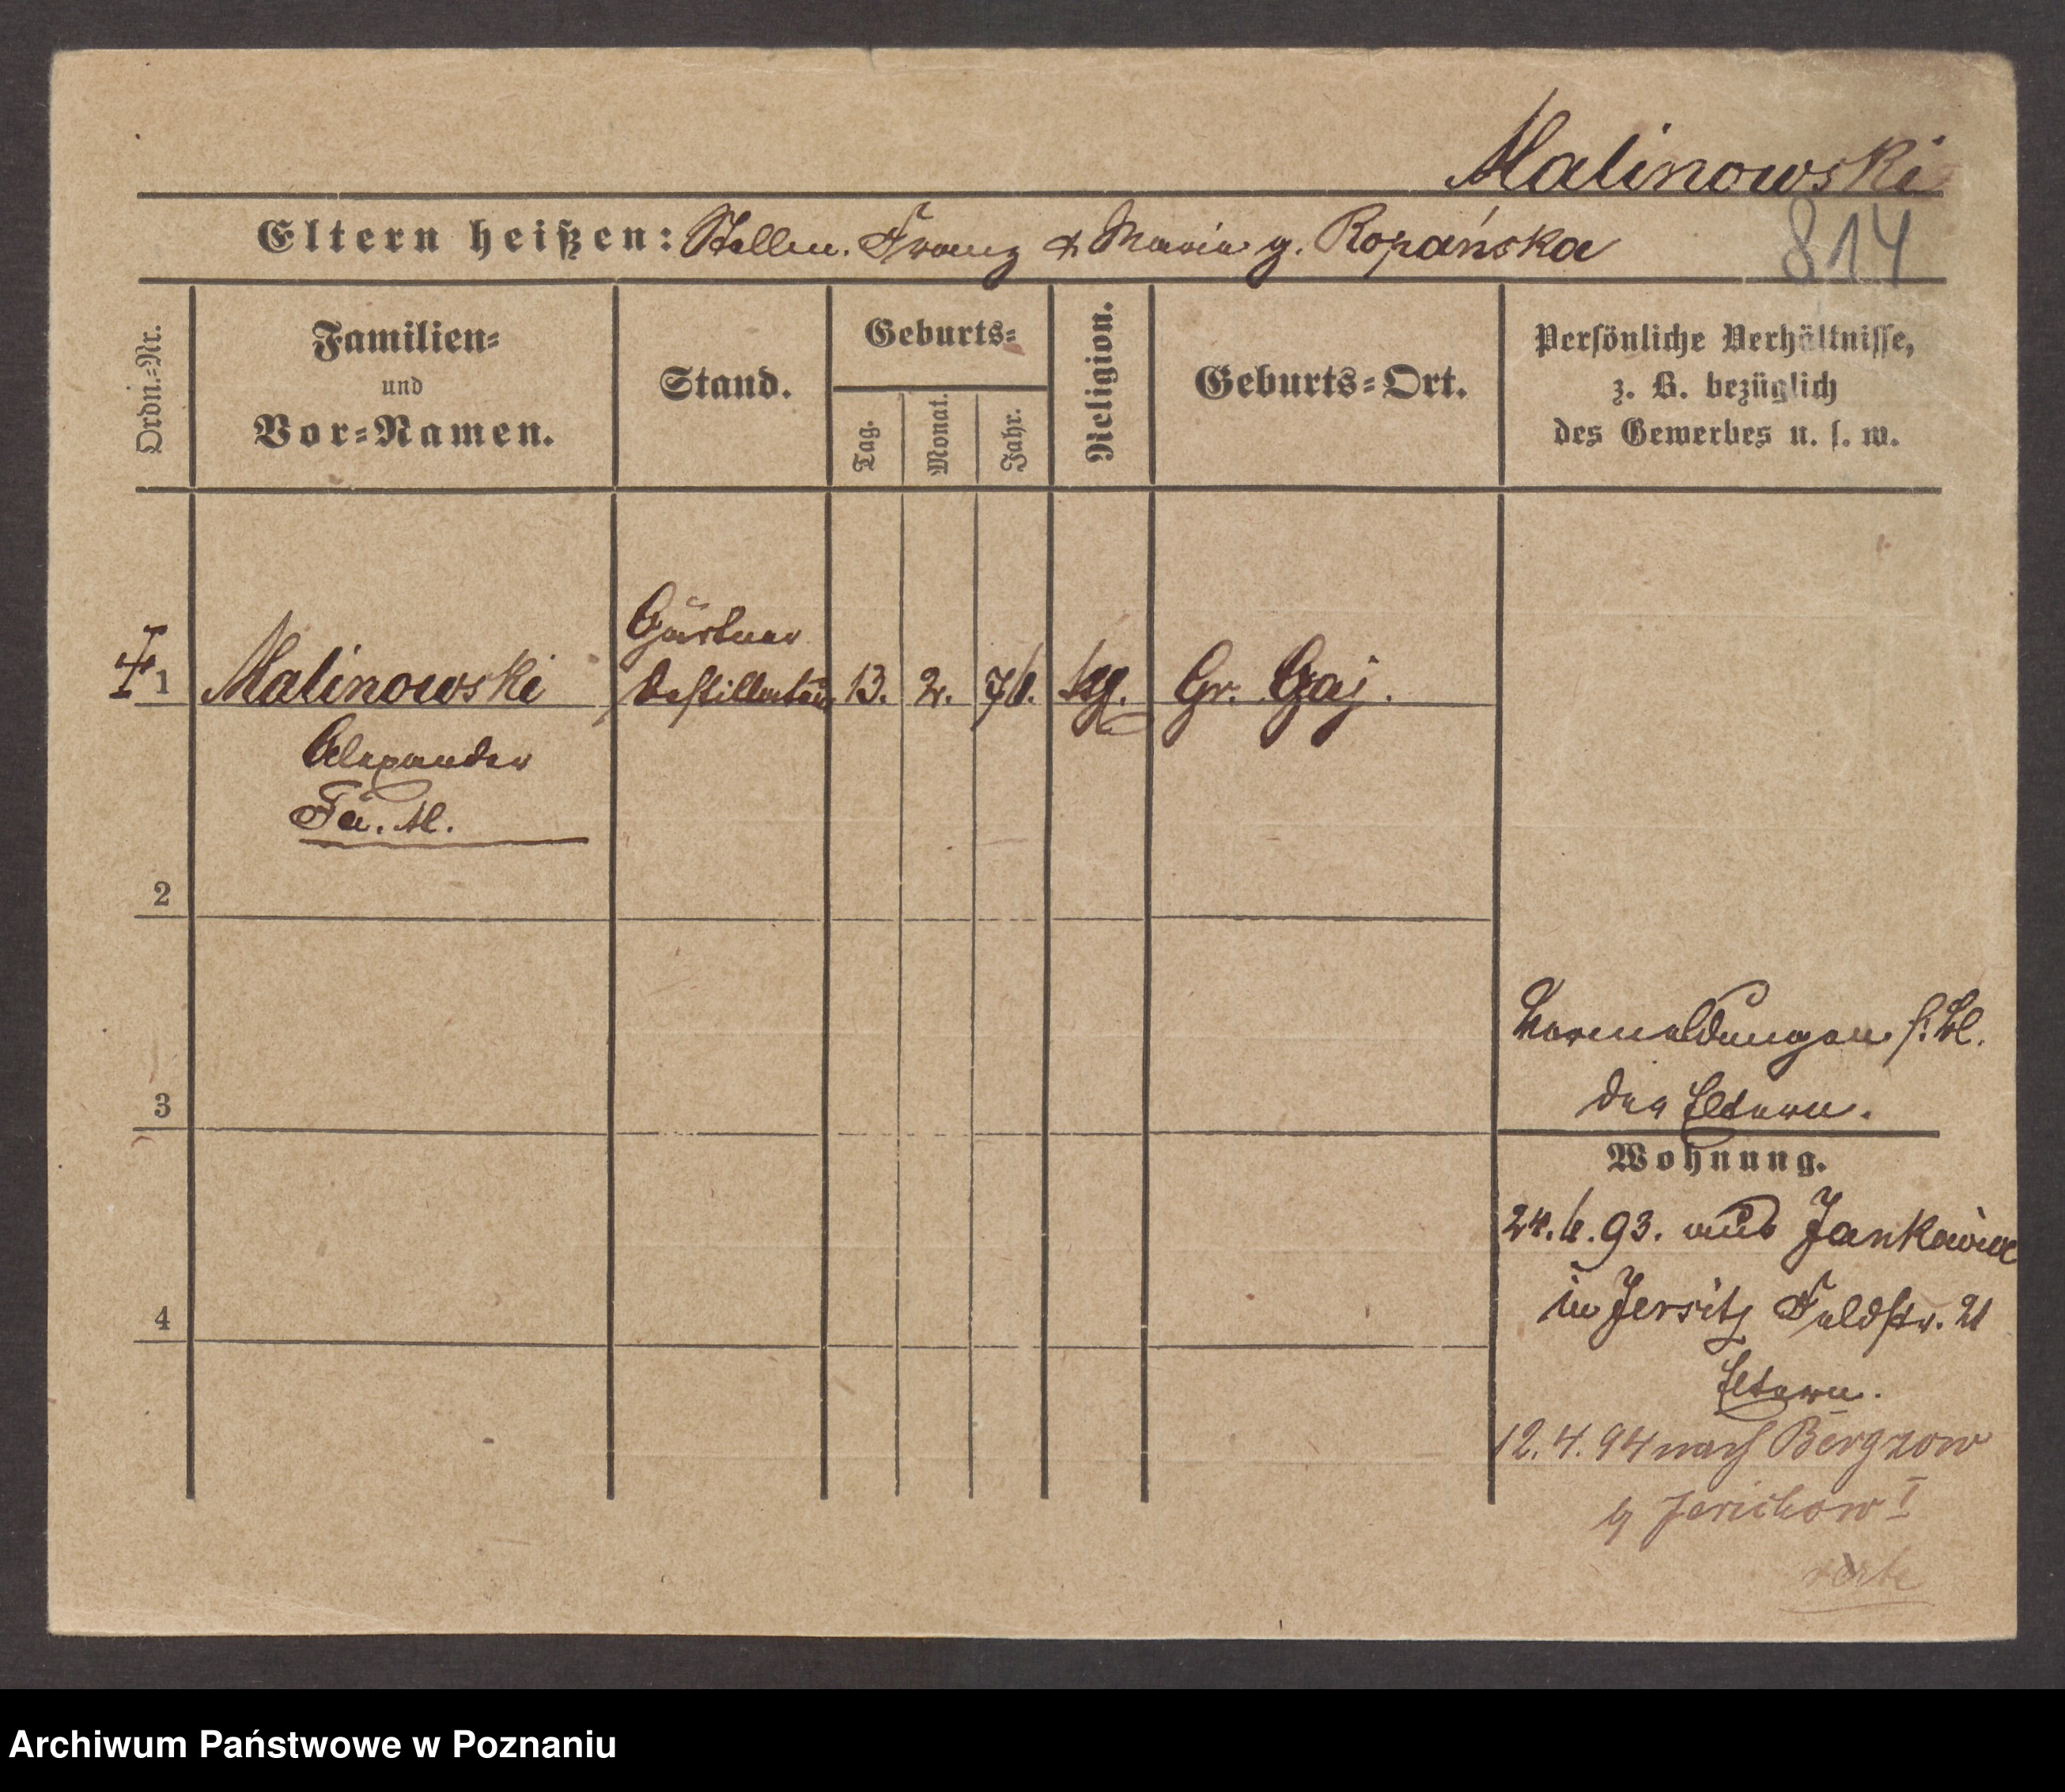 Malinowski
814
Eltern heißen: Stellm. Franz & Maria g. Ropańska
Ordn.-Nr.
Familien-
und
Vor-Namen.
Stand.
Geburts-
Tag.
Monat.
Jahr.
Religion.
Geburts-Ort.
Persönliche Verhältnisse,
z. B. bezüglich
des Gewerbes u. s. w.
Gärtner
1 Malinowski Destillateur 13. 2. 76. kg. Gr. Gaj.
Alexander
2
3
4
Vermeldungen s. Bl.
der Eltern.
Wohnung.
24.6.93. aus Jankowice
in Jersitz Feldstr. 21
Eltern.
12.4.94 nach Bergzow
Jerichow I
verte
Archiwum Państwowe w Poznaniu